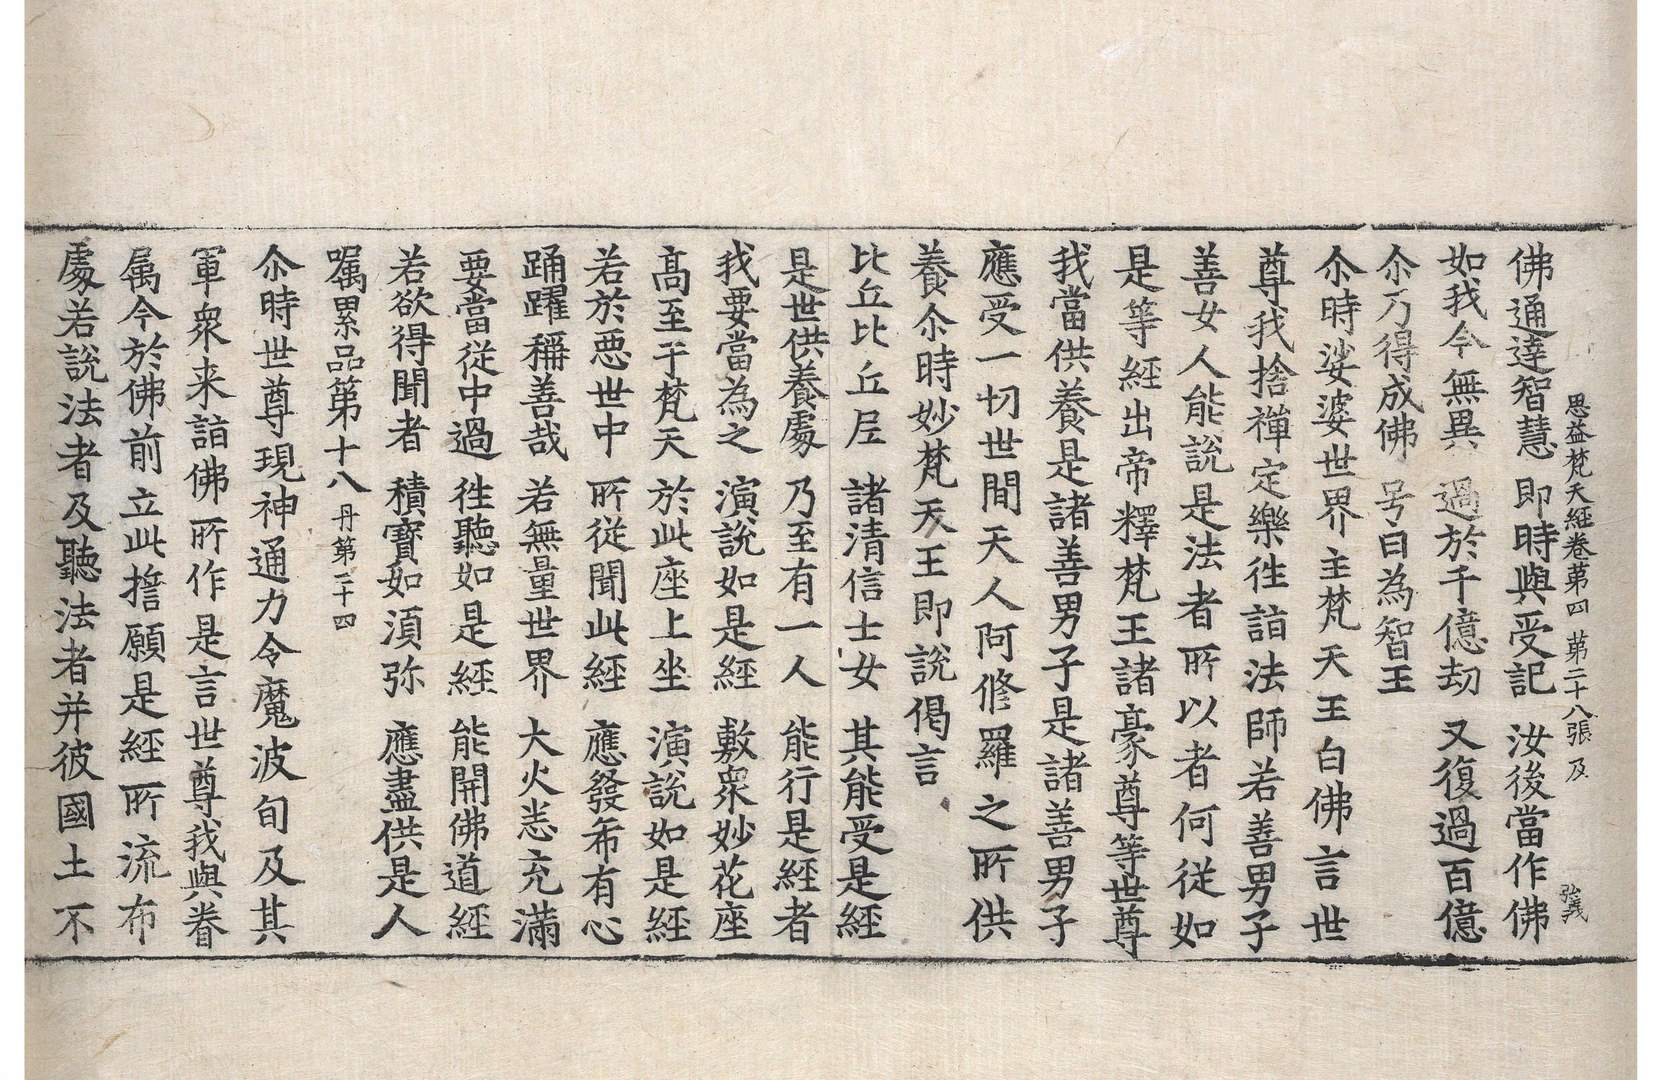 思益梵天經卷第四 第二十八張 及
佛通達智慧 即時與受記 汝後當作佛
如我今無異 過於千億劫 又復過百億
尒乃得成佛 号曰為智王
尒時娑婆世界主梵天王白佛言世
尊我捨禪定樂徃詣法師若善男子
善女人能說是法者所以者何從如
是等經出帝釋梵王諸豪尊等世尊
我當供養是諸善男子是諸善男子
應受一切世間天人阿脩羅之所供
養尒時妙梵天王即說偈言
比丘比丘尼 諸清信士女 其能受是經
是世供養處 乃至有一人 能行是經者
我要當為之 演說如是經 敷衆妙花座
高至于梵天 於此座上坐 演說如是經
若於惡世中 所從聞此經 應發希有心
踊躍稱善哉 若無量世界 大火悉充滿
要當從中過 徃聽如是經 能開佛道經
若欲得聞者 積寶如須弥 應盡供是人
嘱累品第十八 丹第二十四
尒時世尊現神通力令魔波旬及其
軍衆来詣佛所作是言世尊我與眷
属今於佛前立此誓願是經所流布
處若說法者及聽法者并彼國土不